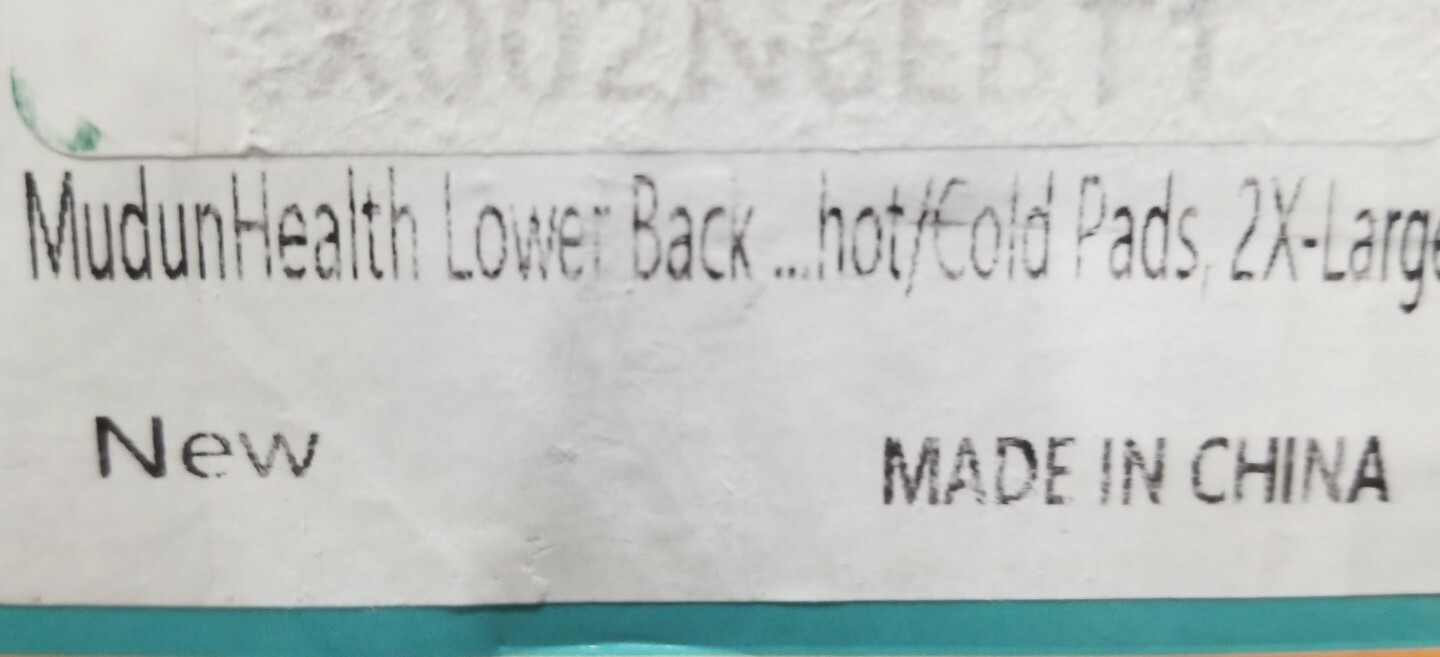 MudunHealth Lower Back ...hot/Cold Pads, 2X-Large
New
MADE IN CHINA